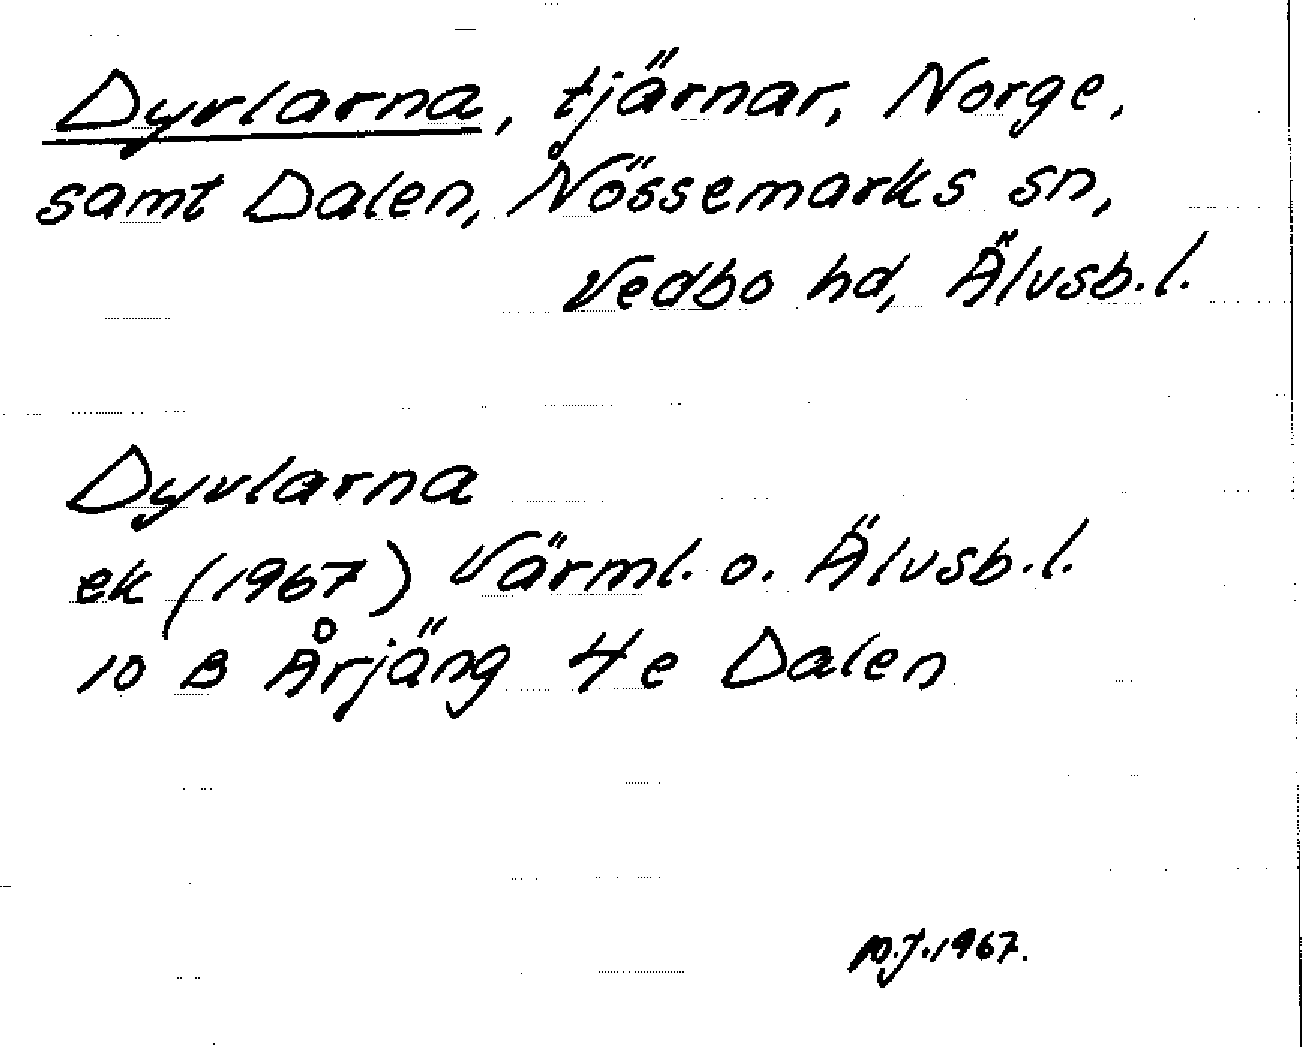 Dyvlarna, tjärnar, Norge,
samt Dalen, Nössemarks sn,
Vedbo hd, Älvsb. l.
Dyvlarna
ek (1967) Värml. o. Älvsb. l.
10 B Årjäng 4e Dalen
1967.